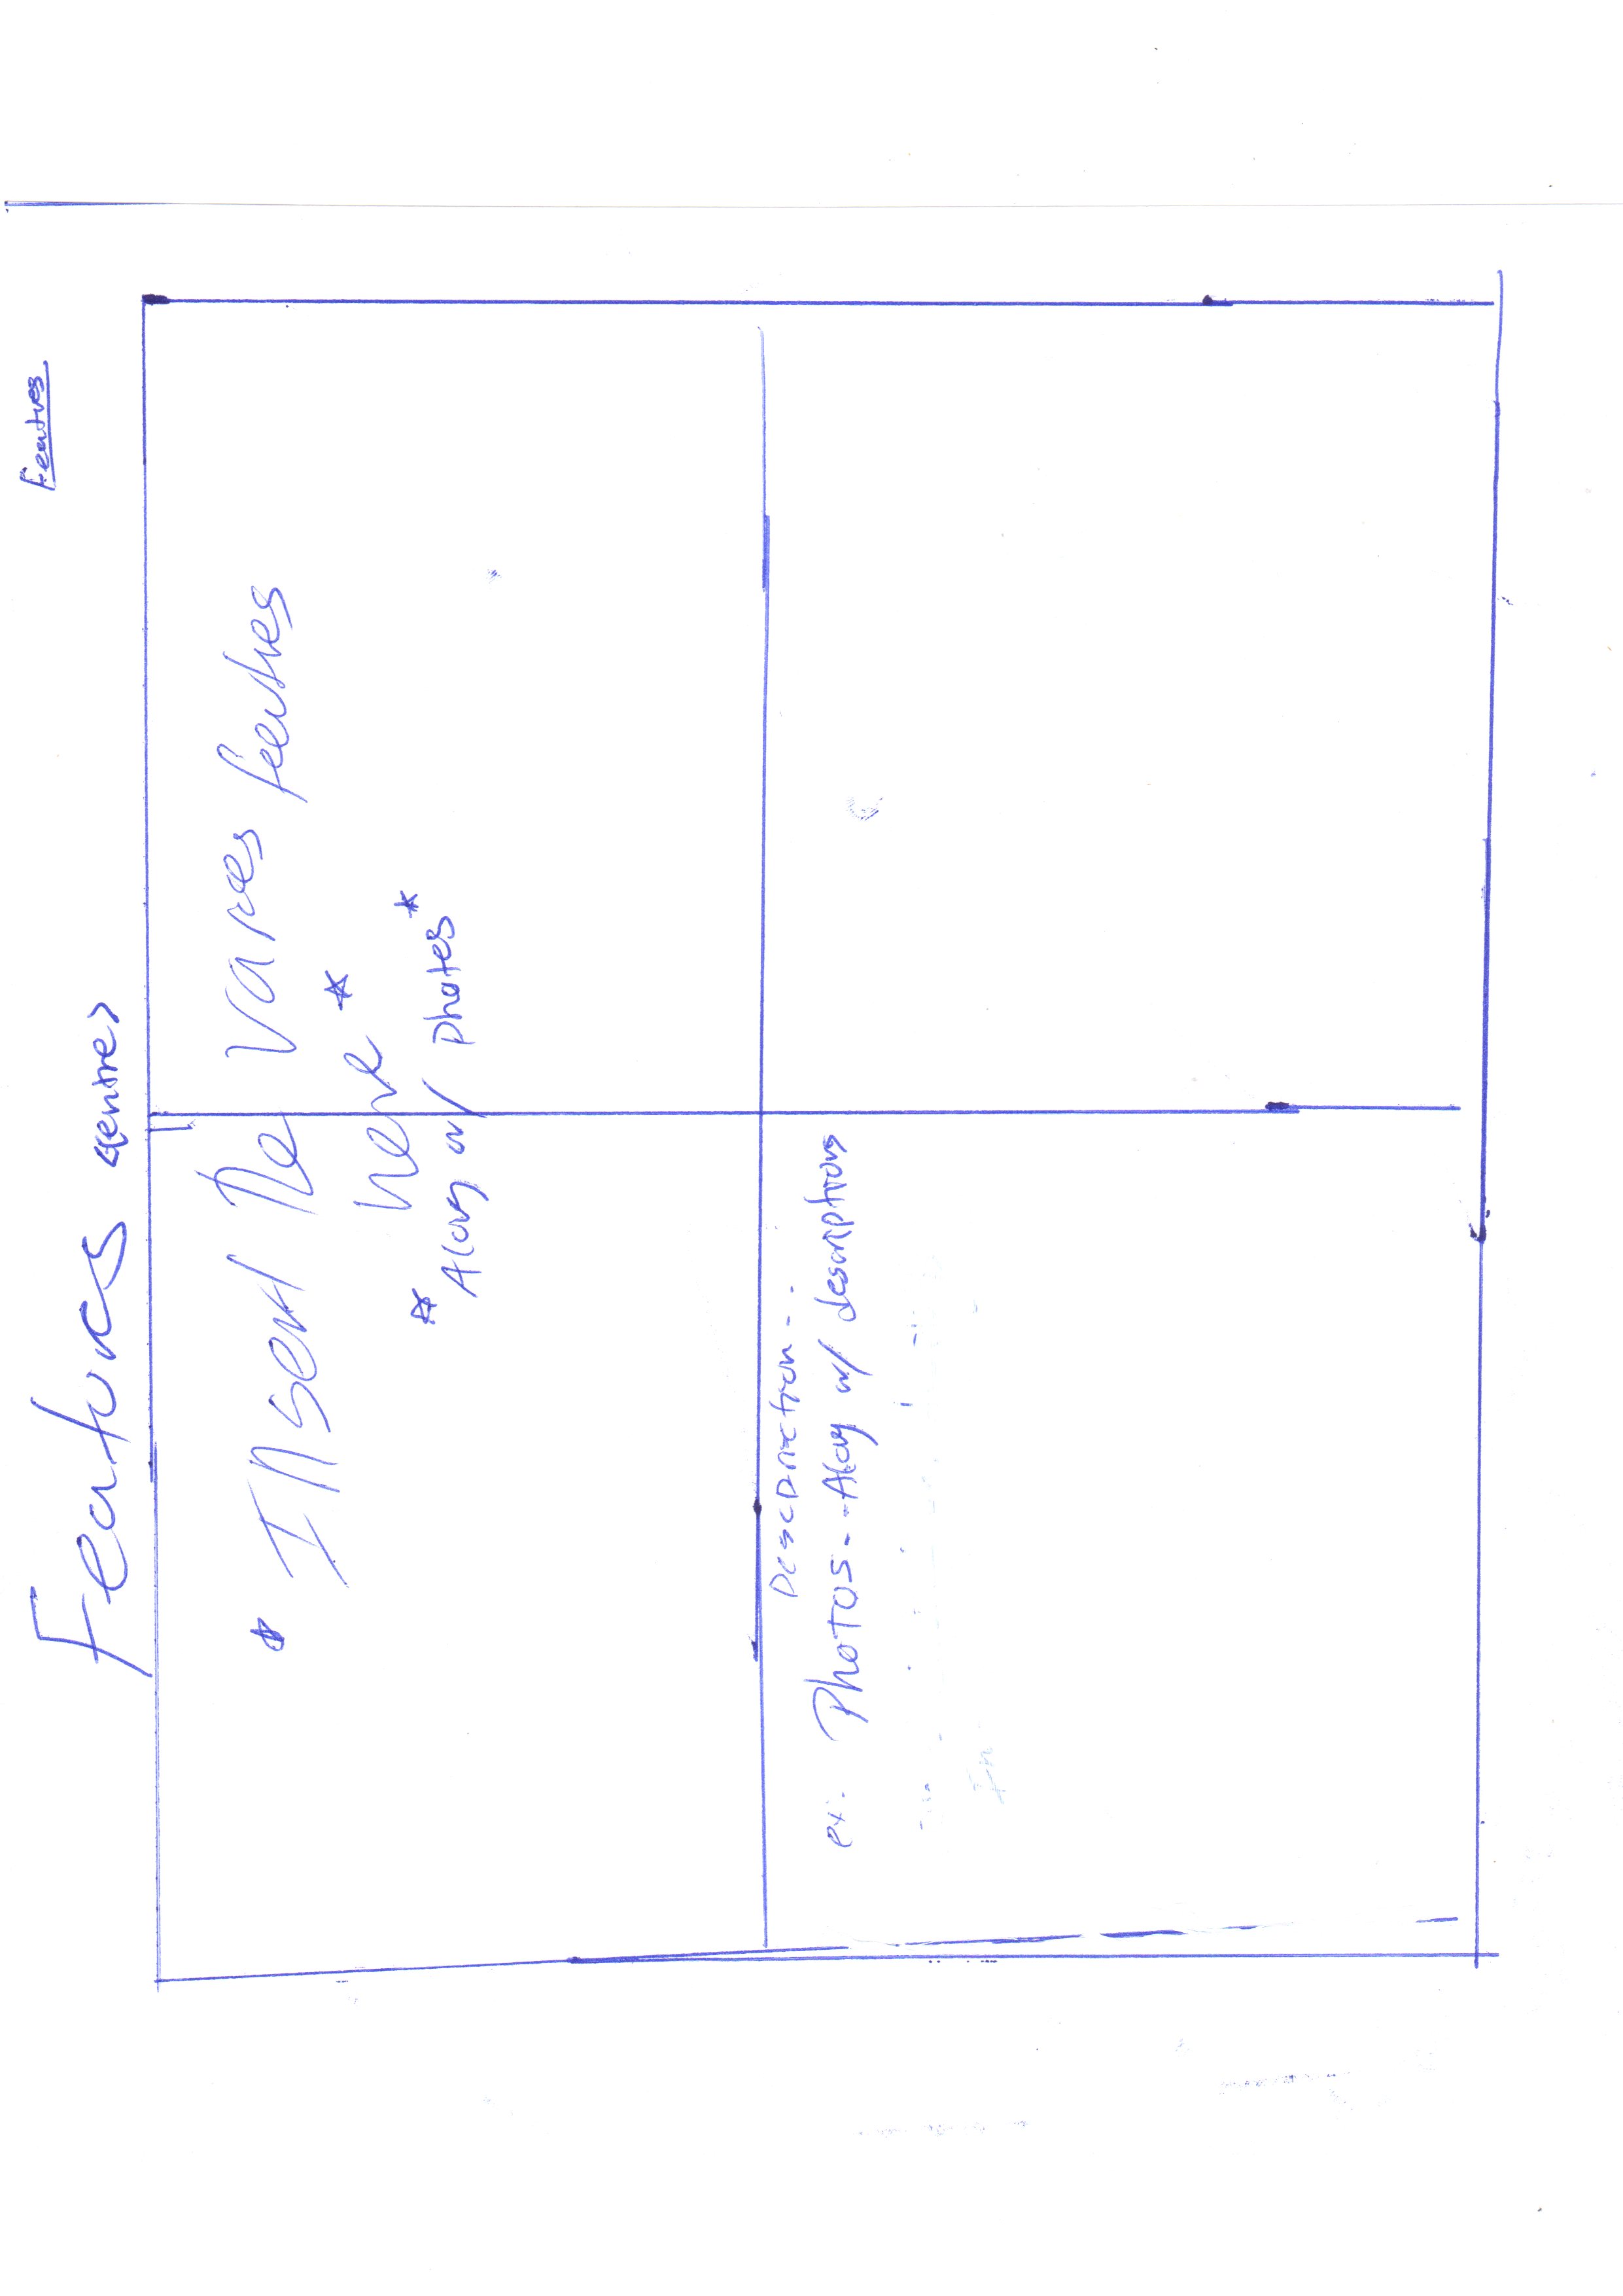 Features
Features <entire>
* Insert The Varies features
here *
* Along w/ photos *
Description - -
ex. Photos - - Along w/ descriptions